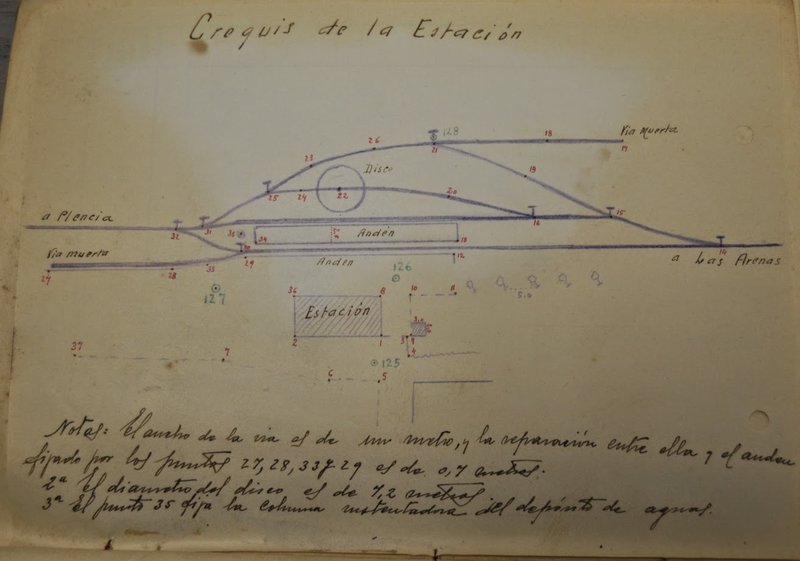 Croquis de la Estación
128
Vía Muerta
26
21
18
17
23
Disco
19
25
24
22
20
a Plencia
32
31
16
15
35
34
Andén
13
14
Vía muerta
30
29
Andén
12
a Las Arenas
27
28
33
126
127
36
8
10
11
Estación
2
1
3
9
4
37
7
125
6
5
Notas: El ancho de la via es de un metro, y la separación entre ella y el anden
fijado por los puntos 27, 28, 33 y 29 es de 0,7 metros.
2ª El diametro del disco es de 7,2 metros
3ª El punto 35 fija la columna sustentadora del depósito de aguas.